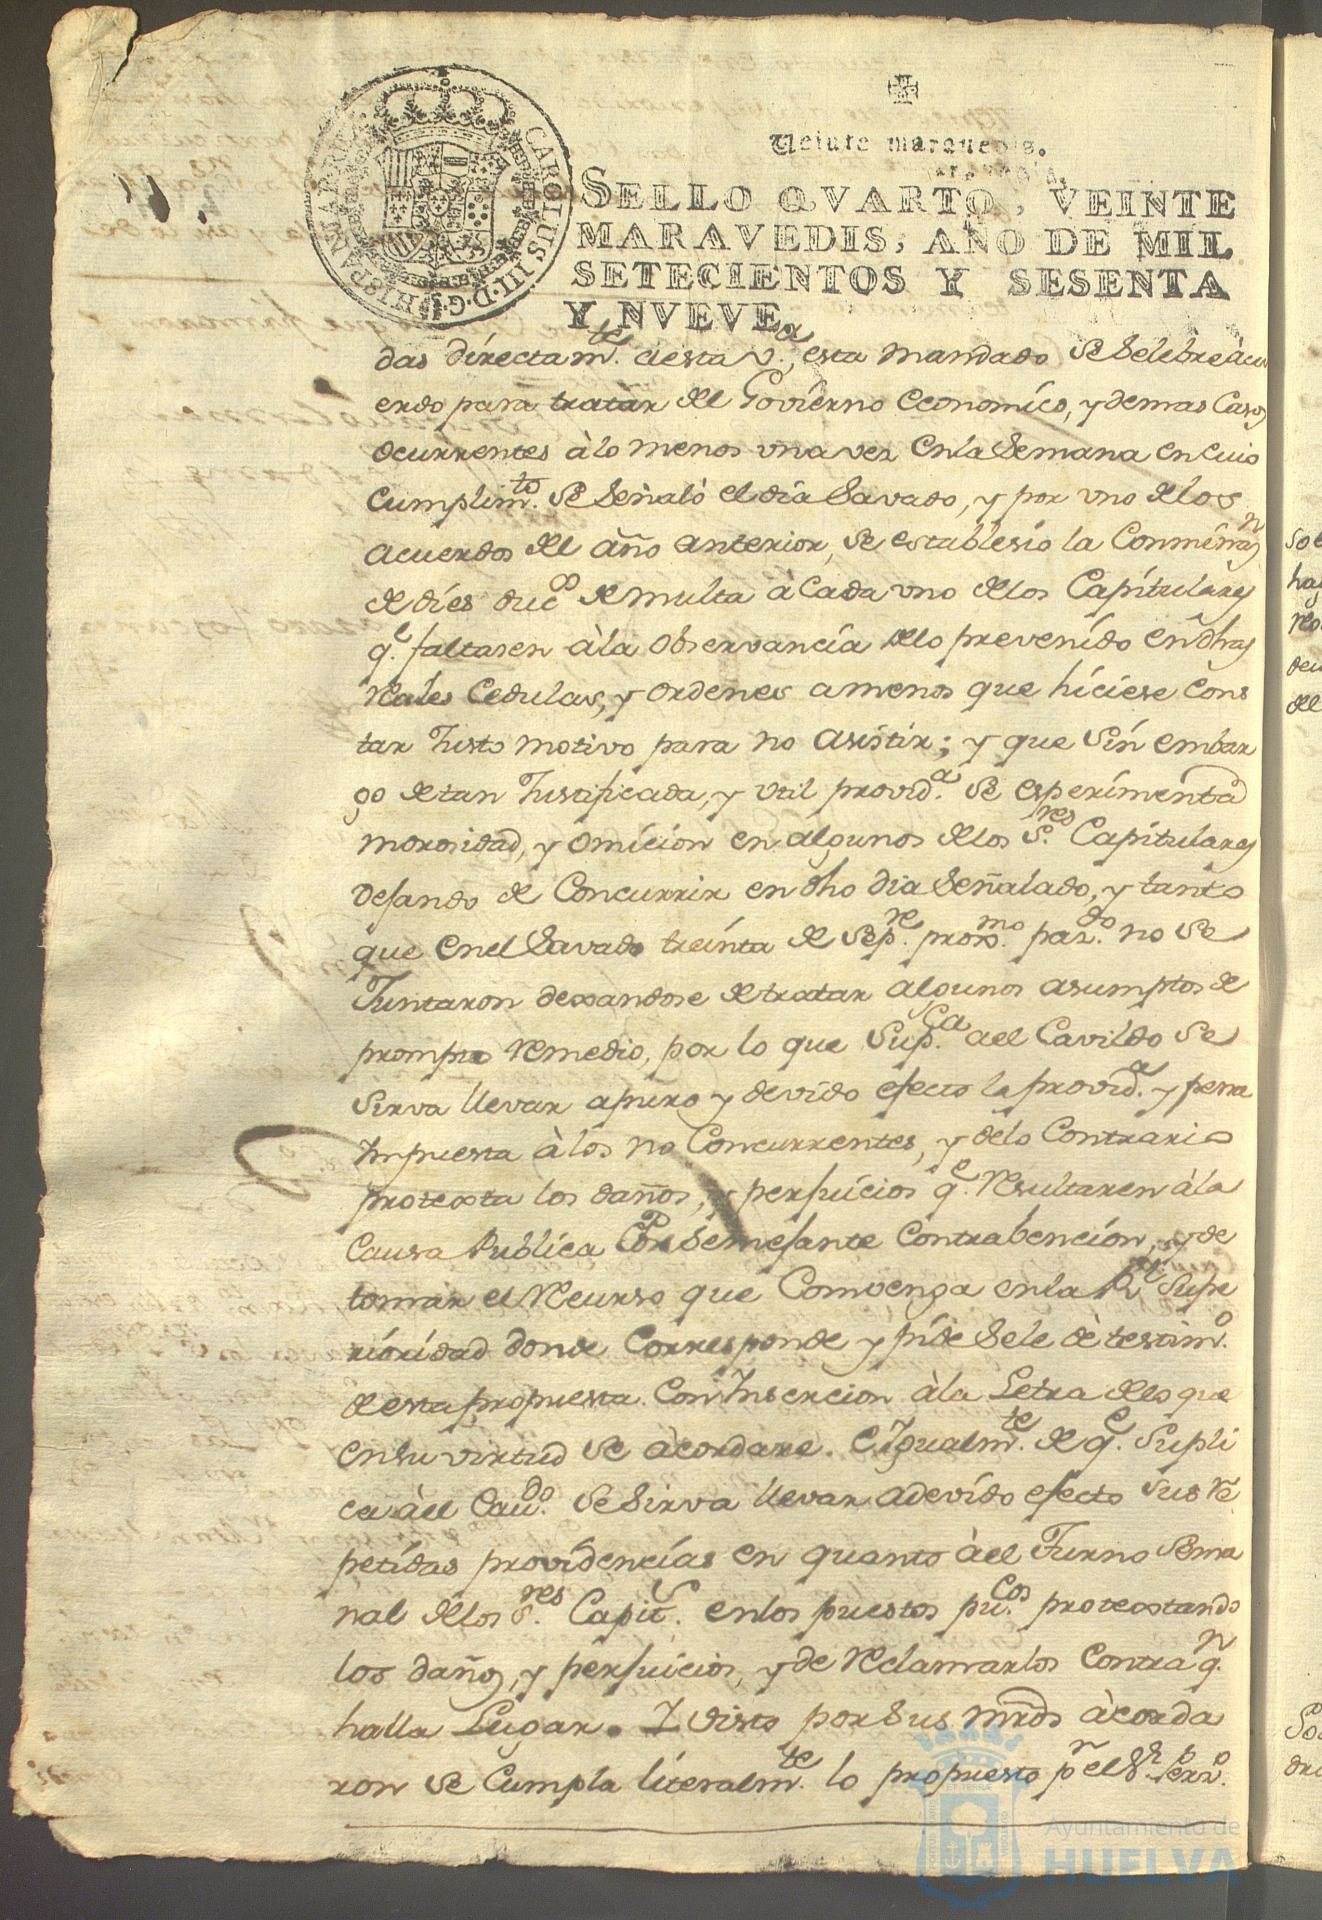 Veinte maravedis.
SELLO QVARTO, VEINTE
MARAVEDIS, AÑO DE MIL
SETECIENTOS Y SESENTA
Y NVEVE
CAROLUS III D.G. HISPANIAR REX
das directamte. aesta va. esta mandado se Selebre àcu
erdo para tratar del Govierno economico, y demas Casos
ocurrentes àlo menos una vez enla Semana en cuio
cumplimto. se Señalò el dia Savado, y por uno delos
acuerdos del año anterior, se establesio la
de dies ducos de multa à Cada uno delos Capitulares
qe. faltasen àla observancia delo prevenido en dhas
Reales Cedulas, y ordenes amenos que hiciese Cons
tar Justo motivo para no asistir; y que sin embar
go de tan Justificada, y util provida. se esperimenta
morosidad, y omicion en algunos delos Sres. Capitulares
desando de Concurrir en dho dia Señalado, y tanto
que enel Savado treinta de Sepre. proxmo. pazdo. no se
Juntaron dexandose de tratar algunos asumptos de
prompto remedio, por lo que Supca. ael Cavildo se
sirva llevar apuro y devido efecto la provida. y pena
Impuesta àlos no Concurrentes, y delo Contrario
protexta los daños, y perjuicios qe. Resultaren àla
Causa Publica Por Semejante Contrabencion, y de
tomar el Recurso que Convenga enla Rl. Supe
rioridad donde Corresponde y pide Sele dè testimo.
de esta propuesta Con Insercion àla Letra delo que
en su virtud se àcordare. E Igualmte. de qe. Supli
ca àel Cavdo. se Sirva llevar adevido efecto sus Re
petidas providencias en quanto àel Turno Sema
nal delos Sres. Capit. enlos puestos pucos. protextando
los daños, y perjuicios, y de Reclamarlos Contra qn.
halla Lugar. I visto por Sus Mrds àcorda
ron se Cumpla literalmte. lo propuesto pr. el Sr.
Ayuntamiento de
HUELVA